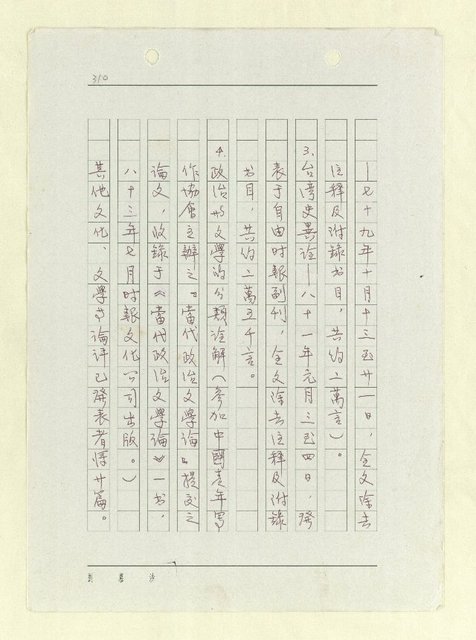 310
—七十九年十月十三至廿一日，全文除去
注释及附錄书目，共约二萬言）。
3.台湾史異诠—八十一年元月三至四日，發
表于自由时報副刊，全文除去注释及附錄
书目，共约二萬五千言。
4.政治的文學的分類诠解（参加中國青年寫
作協會主辦之『當代政治文學論』提交之
論文，收錄于《當代政治文學論》一书，
八十三年七月时報文化公司出版。）
其他文化、文學论评已發表者僅廿篇。